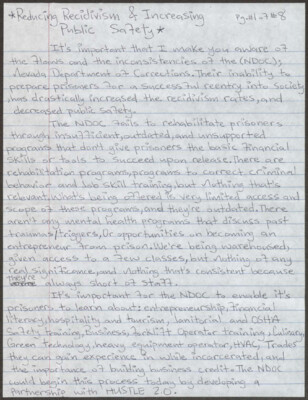 *Reducing Recidivism & Increasing
Public Safety*
Pg. #1 of #8
It's important that I make you aware of
the flaws and the inconsistencies of the (NDOC);
Nevada Department of Corrections. Their inability to
prepare prisoners for a successful reentry into society,
has drastically increased the recidivism rates, and
decreased public safety.
The NDOC fails to rehabilitate prisoners
through insufficient, outdated, and unsupported
programs that don't give prisoners the basic Financial
Skills or tools to succeed upon release. There are
rehabilitation programs, programs to correct criminal
behavior and job skill training, but nothing that's
relevant, what's being offered is very limited access and
scope of these programs, and they're outdated. There
aren't any mental health programs that discuss past
traumas/triggers, Or opportunities on becoming an
entrepreneur from prison. We're being warehoused,
given access to a few classes, but nothing of any
real significance, and nothing that's consistent because
they're always short of staff.
It's important for the NDOC to enable it's
prisoners to learn about; entrepreneurship, financial
literacy, hospitality and tourism, Janitorial and OSHA
Safety training, Business, Forklift Operator training, Culinary,
Green Technology, heavy equipment operator, HVAC, Trades
they can gain experience in while incarcerated, and
the importance of building business credit. The NDOC
could begin this process today by developing a
Partnership with HUSTLE 2.0.